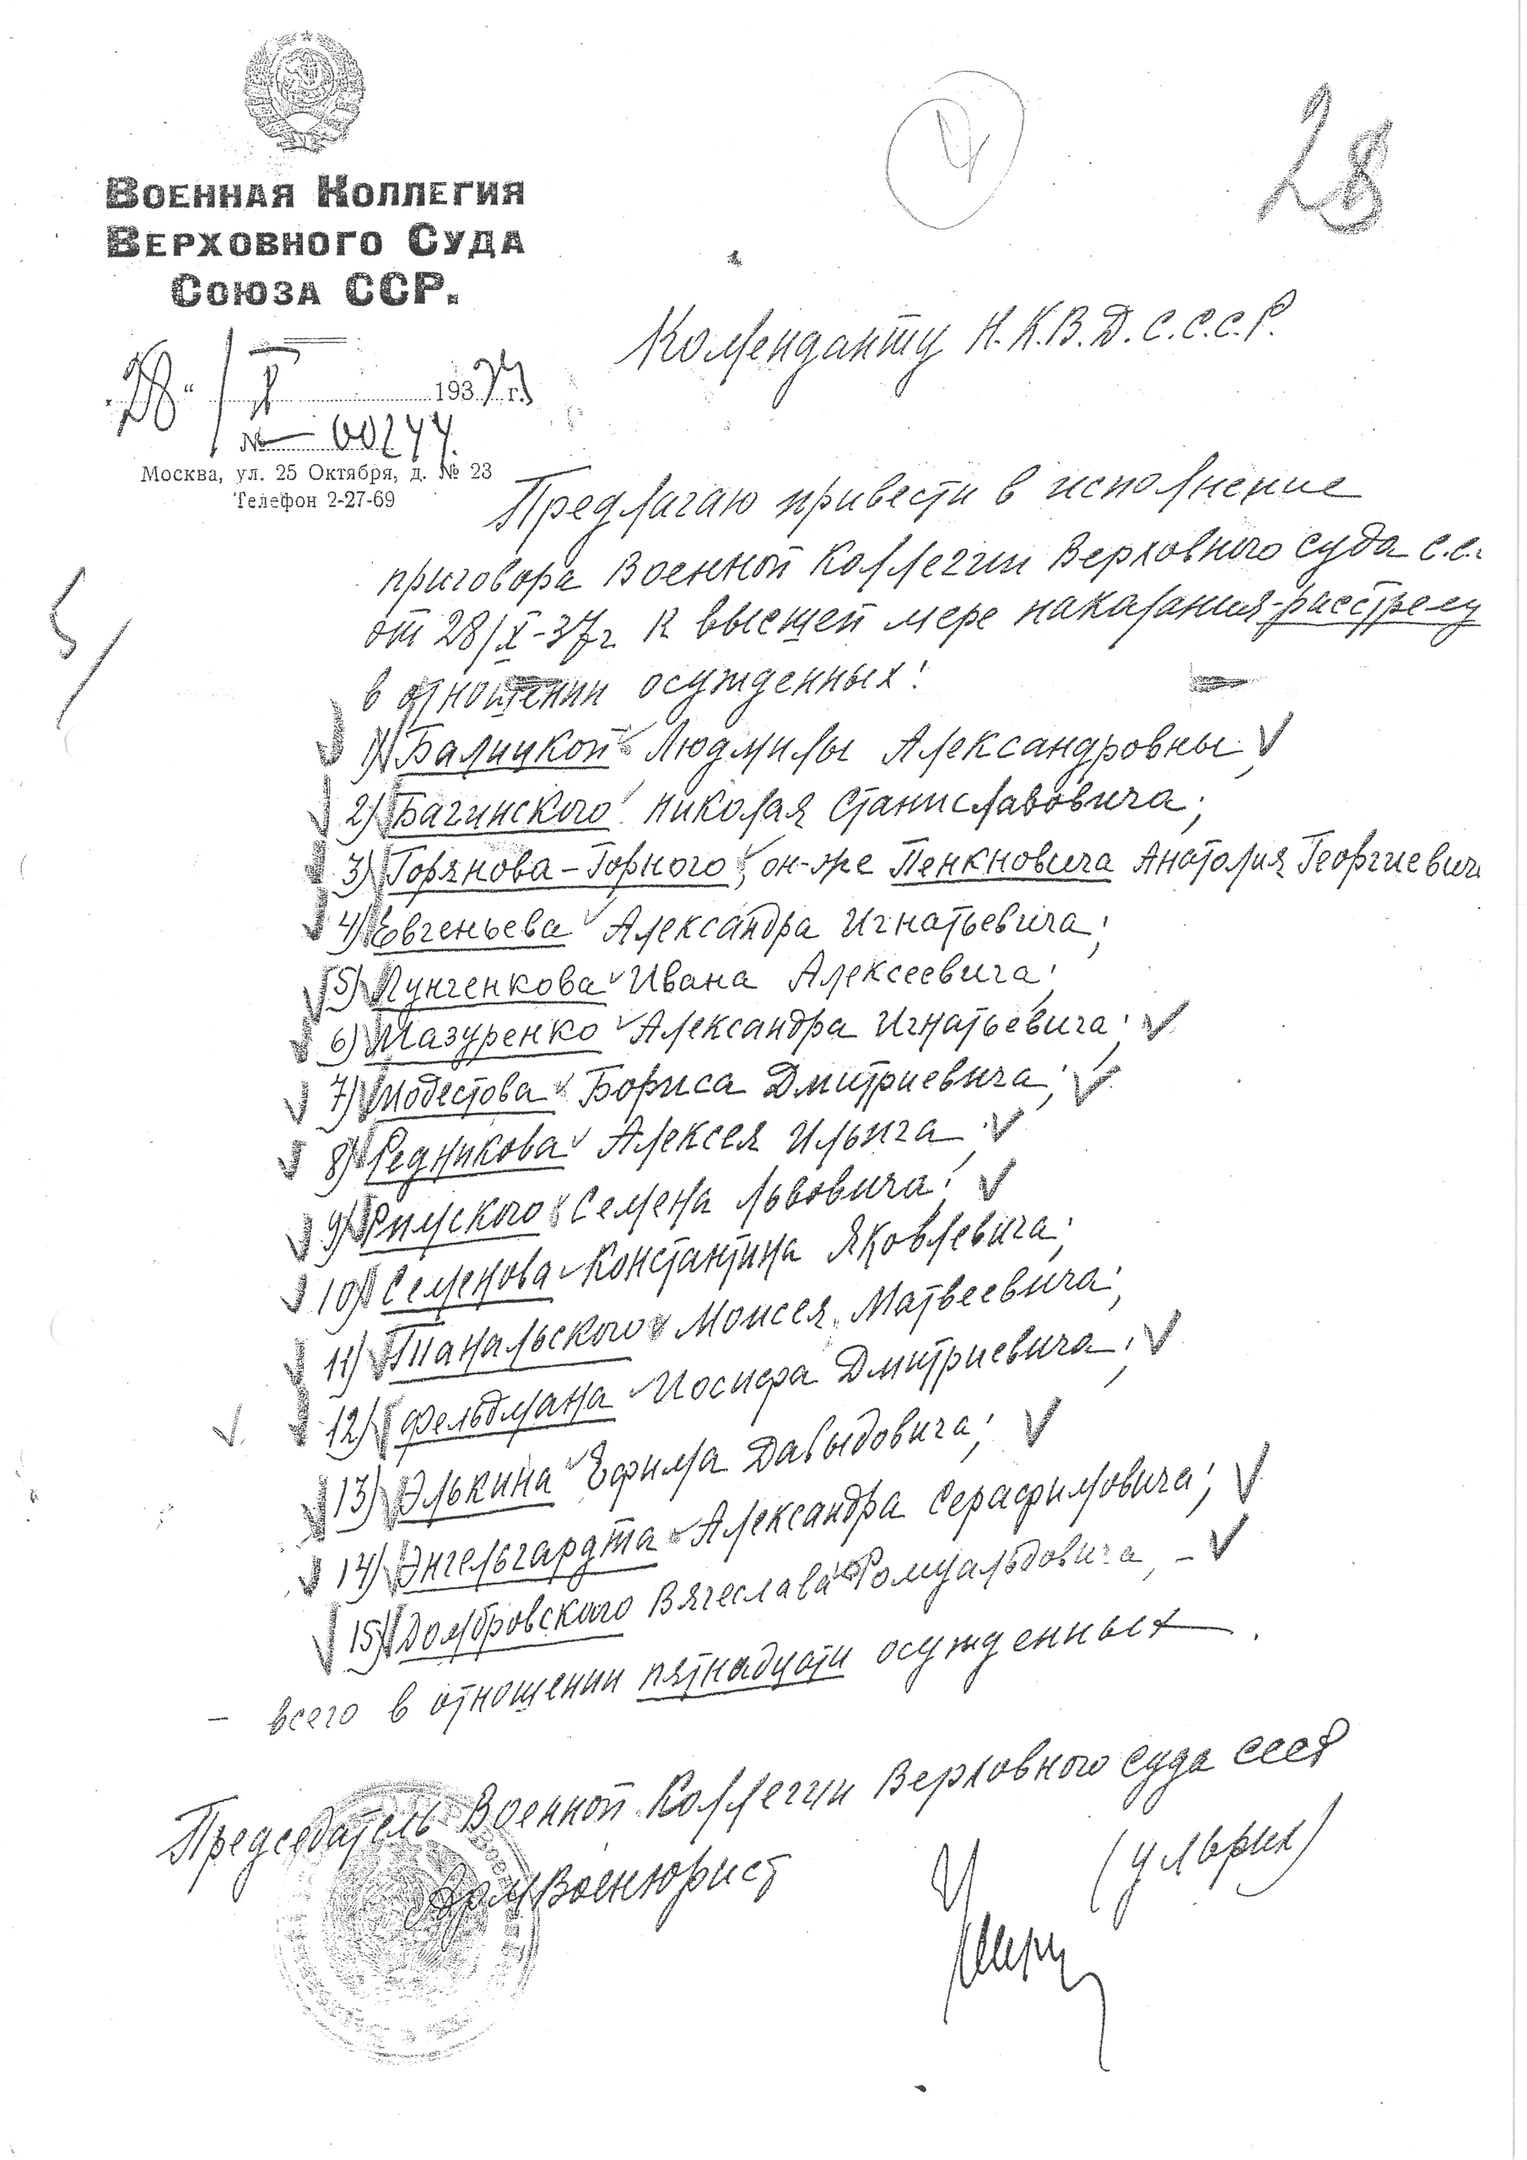 28
Военная Коллегия
Верховного Суда
Союза ССР.
„28“ X 1937 г.
№ 00244.
Москва, ул. 25 Октября, д. № 23
Телефон 2-27-69
Коменданту Н.К.В.Д. С.С.С.Р.
Предлагаю привести в исполнение
приговора Военной Коллегии Верховного суда с.с.
от 28/X-37г. к высшей мере наказания-расстрелу
в отношении осужденных:
1) Балицкой Людмилы Александровны,
2) Багинского Николая Станиславовича;
3) Горянова-Горного, он-же Пенкновича Анатолия Георгиевич
4) Евгеньева Александра Игнатьевича;
5) Лунгенкова Ивана Алексеевича;
6) Мазуренко Александра Игнатьевича;
7) Модестова Бориса Дмитриевича;
8) Редникова Алексея Ильича;
9) Римского Семена Львовича;
10) Семенова Константина Яковлевича;
11) Тианальского Моисея Матвеевича;
12) Фельдмана Иосифа Дмитриевича;
13) Элькина Ефима Давыдовича;
14) Энгельгардта Александра Серафимовича;
15) Домбровского Вячеслава Ромуальдовича, -
- всего в отношении пятнадцати осужденных.
Председатель Военной Коллегии Верховного суда СССР
Армвоенюрист
(Ульрих)